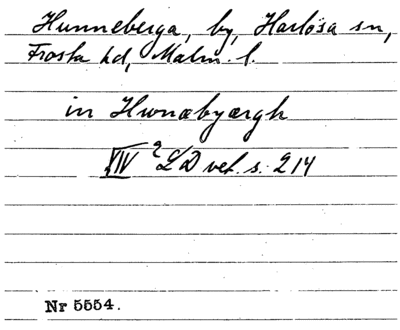 Hunneberga, by, Harlösa sn,
Frosta hd, Malm. l.
in Hwnæbyærgh
XIV 2 LD vet. s. 214
Nr 5554.